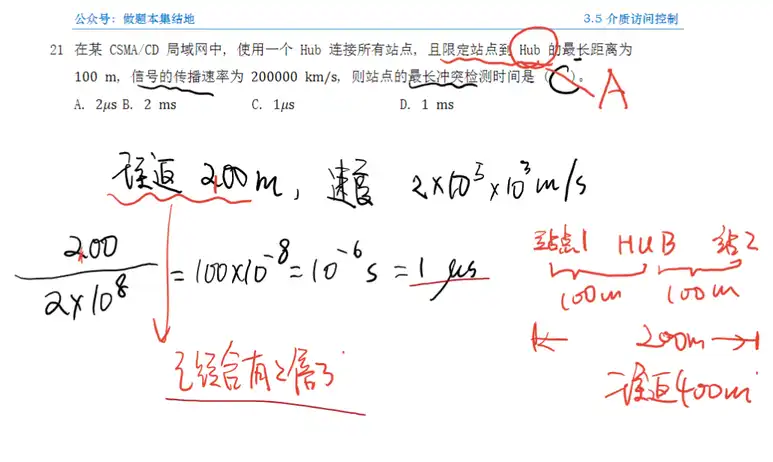 公众号：做题本集结地
3.5 介质访问控制
21 在某 CSMA/CD 局域网中，使用一个 Hub 连接所有站点，且限定站点到 Hub 的最长距离为
100 m，信号的传播速率为 200000 km/s，则站点的最长冲突检测时间是（ C ）。
A
A. 2μs B. 2 ms C. 1μs D. 1 ms
往返 200m，速度 2×10⁵×10³m/s
200
2×10⁸
=100×10⁻⁸=10⁻⁶s=1μs
站点1 HUB 站2
100m 100m
200m
往返400m
已经含有2倍了